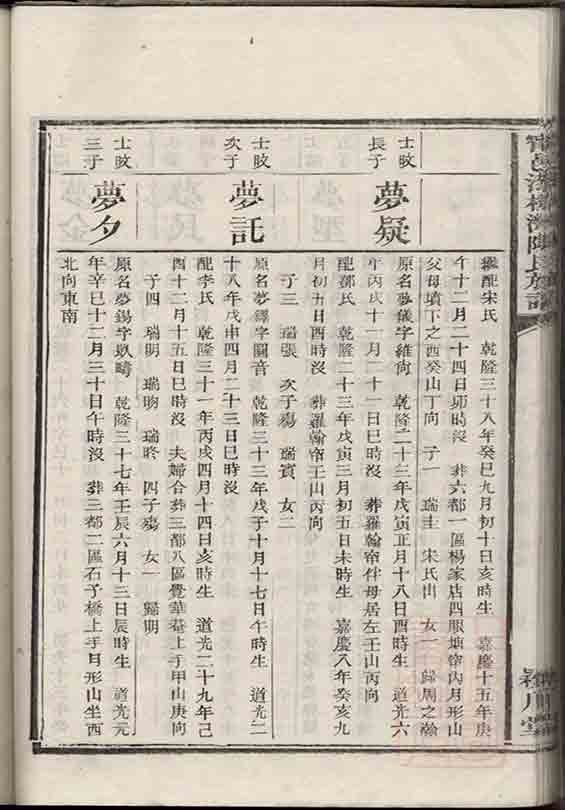 陳氏族譜
潁川堂
繼配宋氏 乾隆三十八年癸巳九月初十日亥時生 嘉慶十五年庚
午十二月二十四日卯時沒 葬六都一區楊家店四眼塘窰內月形山
父母墳下之酉癸山丁向 子一 瑞圭 宋氏出 女一 歸周之瀚
士旼
長子
夢疑
原名夢儀字維向 乾隆二十三年戊寅正月十八日酉時生 道光六
年丙戌十一月二十一日巳時沒 葬羅翰窰伴母居左壬山丙向
配鄧氏 乾隆二十三年戊寅三月初五日未時生 嘉慶八年癸亥九
月初五日酉時沒 葬羅翰窰壬山丙向
子三 瑞張 次子殤 瑞賓 女二
士旼
次子
夢託
原名夢鐸字圖音 乾隆三十三年戊子十月十七日午時生 道光二
十八年戊申四月二十三日巳時沒
配李氏 乾隆三十一年丙戌四月十四日亥時生 道光二十九年己
酉十二月十五日巳時沒 夫婦合葬三都八區覺華菴上手甲山庚向
子四 瑞明 瑞昀 瑞咚 四子殤 女一 歸胡
士旼
三子
夢夕
原名夢錫字玖疇 乾隆三十七年壬辰六月十三日辰時生 道光元
年辛巳十二月三十日午時沒 葬三都二區石子橋上手月形山坐西
北向東南